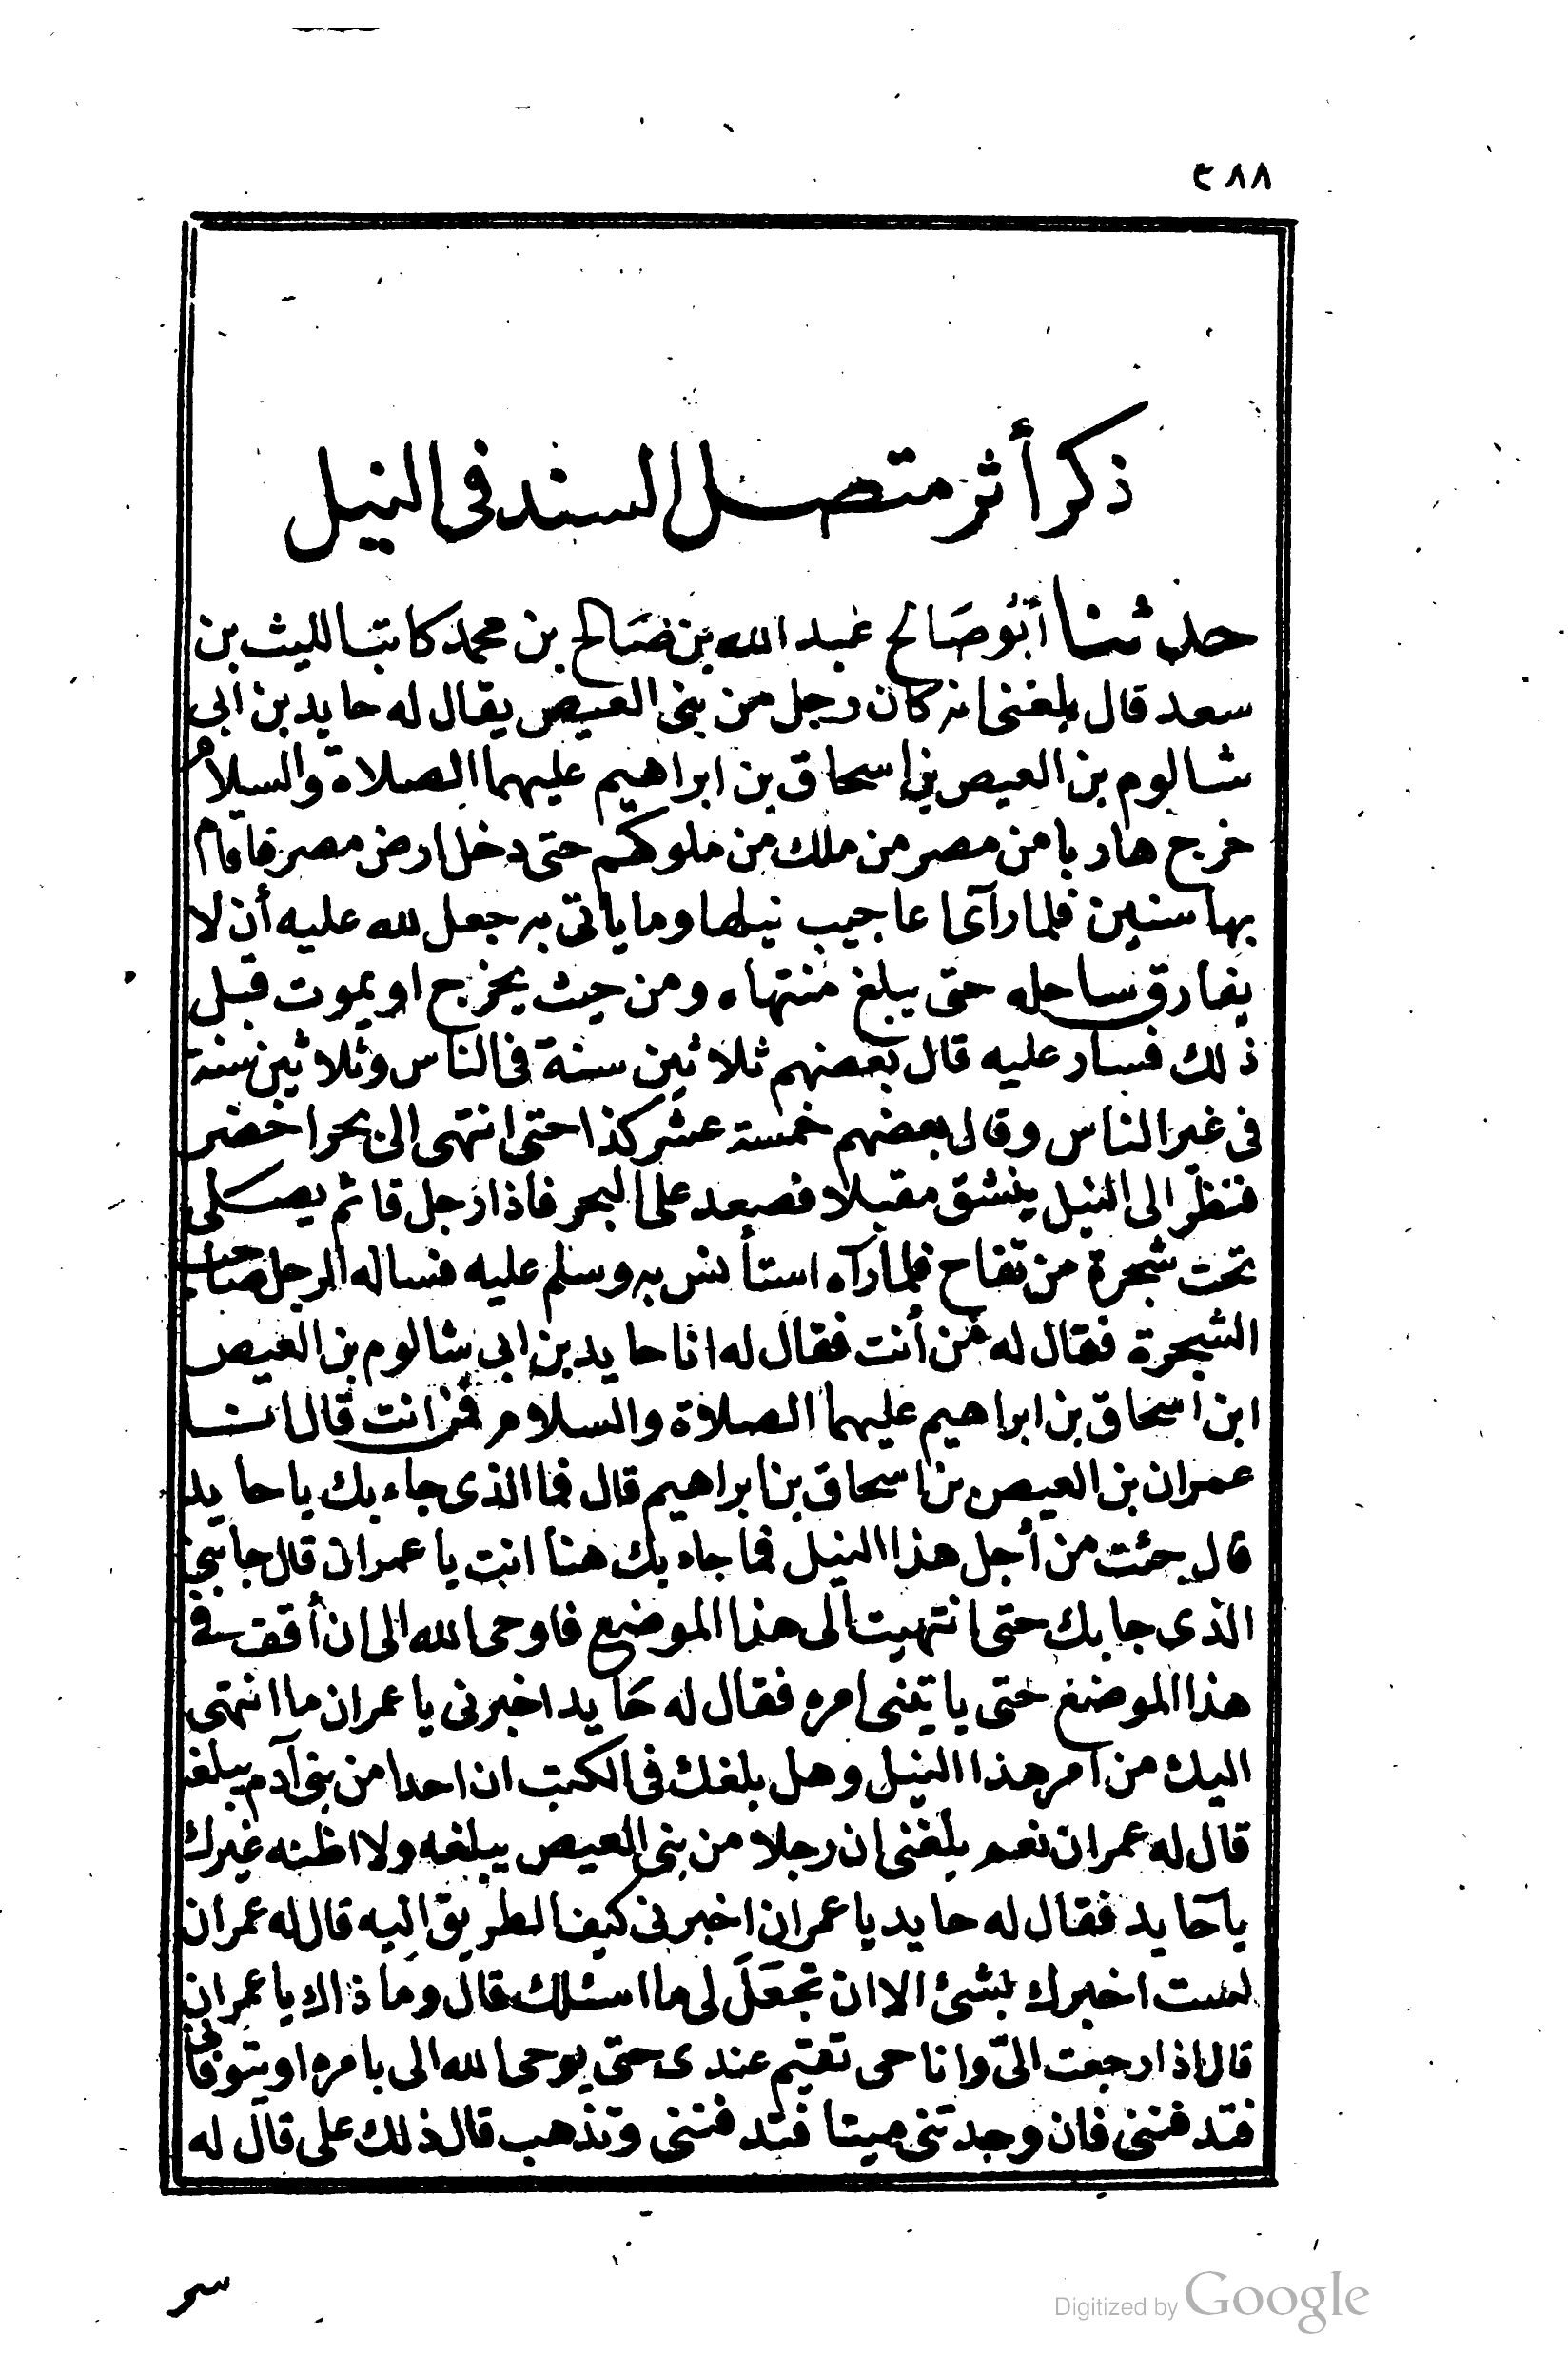 ٣٨٨
ذكر أثر متصل السند فى النيل
حدثنا أبو صالح عبد الله بن صالح بن محمد كاتب الليث بن
سعد قال بلغنى انه كان رجل من بنى العيص يقال له حايد بن ابى
شالوم بن العيص بن إسحاق بن ابراهيم عليهما الصلاة والسلام
خرج هاربا من مصر من ملك من ملوكهم حتى دخل ارض مصر فاقام
بها سنين فلما رآى اعاجيب نيلها وما ياتى به جعل لله عليه أن لا
يفارق ساحله حتى يبلغ منتهاه ومن حيث يخرج او يموت قبل
ذلك فسار عليه قال بعضهم ثلاثين سنة فى الناس وثلاثين سنة
فى غير الناس وقال بعضهم خمسة عشر كذا حتى انتهى الى بحر اخضر
فنظر الى النيل ينشق مقبلا فصعد على البحر فاذا رجل قائم يصلى
تحت شجرة من تفاح فلما رآه استأنس به وسلم عليه فساله الرجل صاحب
الشجرة فقال له من أنت فقال له انا حايد بن ابى شالوم بن العيص
ابن اسحاق بن ابراهيم عليهما الصلاة والسلام فمن انت قال انا
عمران بن العيص بن اسحاق بن ابراهيم قال فما الذى جاء بك يا حايد
قال جئت من أجل هذا النيل فما جاء بك هنا انت يا عمران قال جا بى
الذى جا بك حتى انتهيت الى هذا الموضع فاوحى الله الى ان أقف فى
هذا الموضع حتى ياتينى امره فقال له حايد اخبرنى يا عمران ما انتهى
اليك من امر هذا النيل وهل بلغك فى الكتب ان احدا من بنى آدم يبلغه
قال له عمران نعم بلغنى ان رجلا من بنى العيص يبلغه ولا اظنه غيرك
يا حايد فقال له حايد يا عمران اخبرنى كيف الطريق اليه قال له عمران
لست اخبرك بشئ الا ان تجعل لى ما اسئلك قال وما ذاك يا عمران
قال اذا رجعت الىّ وانا حى تقيم عندى حتى يوحى الله الى بامره او يتوفانى
فتدفننى فان وجدتنى ميتا فتدفننى وتذهب قال ذلك على قال له
سر
Digitized by Google